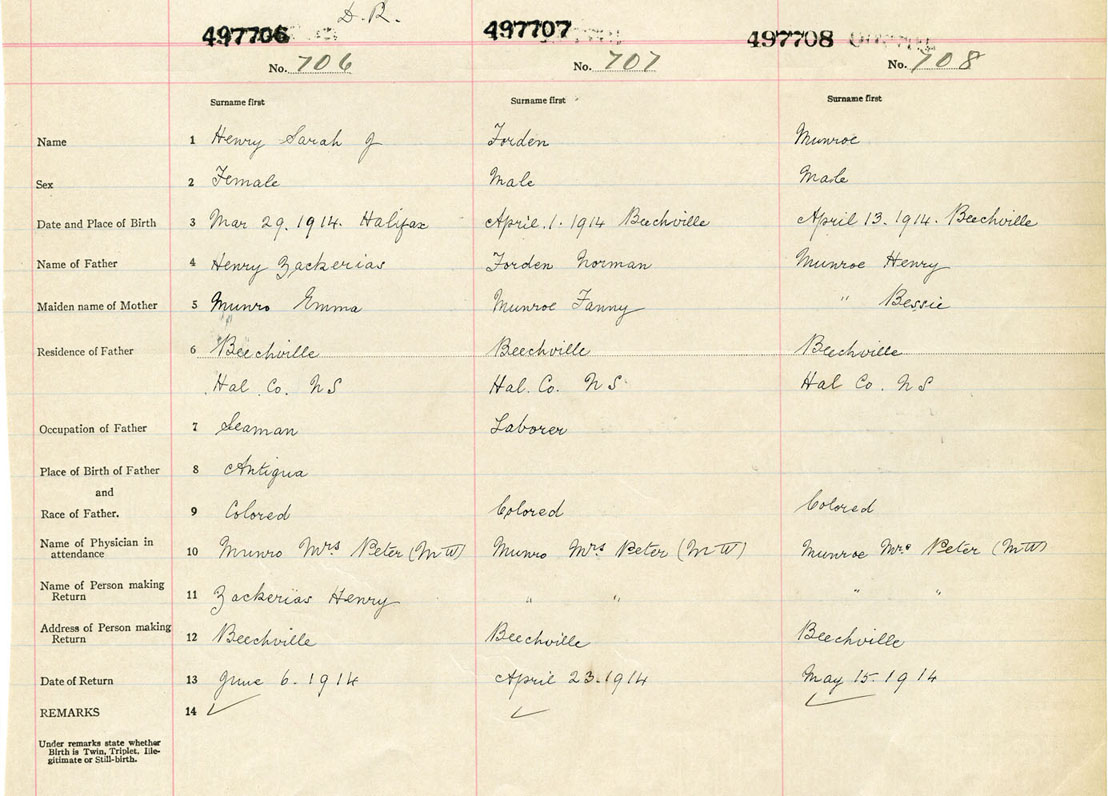 D. R.
497706 497707 497708
No. 706 No. 707 No. 708
Surname first Surname first Surname first
Name 1 Henry Sarah J Forden Munroe
Sex 2 Female Male Male
Date and Place of Birth 3 Mar 29. 1914. Halifax April. 1. 1914 Beechville April 13. 1914. Beechville
Name of Father 4 Henry Zackerias Forden Norman Munroe Henry
Maiden name of Mother 5 Munro Emma Munroe Fanny " Bessie
Residence of Father 6 Beechville Beechville Beechville
Hal. Co. N S Hal. Co. N S. Hal Co. N S
Occupation of Father 7 Seaman Laborer
Place of Birth of Father 8 Antigua
and
Race of Father. 9 Colored Colored Colored
Name of Physician in
attendance 10 Munro Mrs Peter (M W) Munro Mrs Peter (M W) Munroe Mrs Peter (M W)
Name of Person making
Return 11 Zackerias Henry " " " "
Address of Person making
Return 12 Beechville Beechville Beechville
Date of Return 13 June 6. 1914 April 23. 1914 May 15. 1914
REMARKS 14 ✓ ✓ ✓
Under remarks state whether
Birth is Twin, Triplet, Ille-
gitimate or Still-birth.